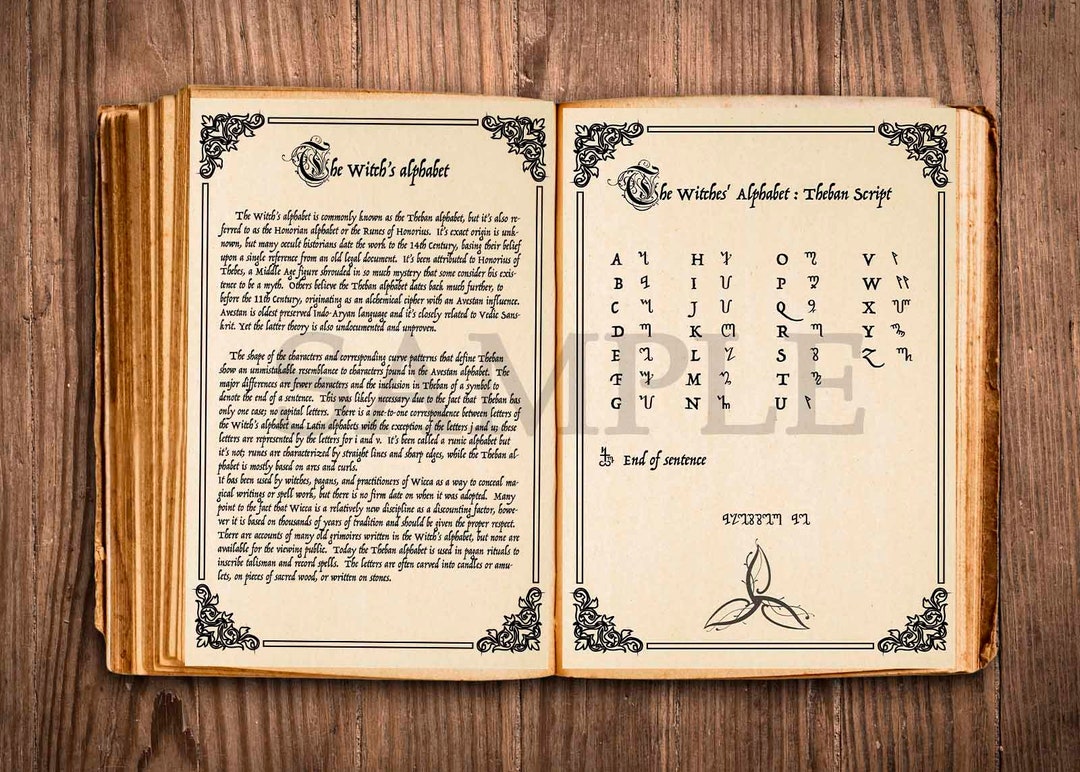 The Witch's alphabet
The Witch's alphabet is commonly known as the Theban alphabet, but it's also re-
ferred to as the Honorian alphabet or the Runes of Honorius. It's exact origin is unk-
nown, but many occult historians date the work to the 14th Century, basing their belief
upon a single reference from an old legal document. It's been attributed to Honorius of
Thebes, a Middle Age figure shrouded in so much mystery that some consider his exis-
tence to be a myth. Others believe the Theban alphabet dates back much further, to
before the 11th Century, originating as an alchemical cipher with an Avestan influence.
Avestan is oldest preserved Indo-Aryan language and it's closely related to Vedic Sans-
krit. Yet the latter theory is also undocumented and unproven.
The shape of the characters and corresponding curve patterns that define Theban
show an unmistakable resemblance to characters found in the Avestan alphabet. The
major differences are fewer characters and the inclusion in Theban of a symbol to
denote the end of a sentence. This was likely necessary due to the fact that Theban has
only one case; no capital letters. There is a one-to-one correspondence between letters of
the Witch's alphabet and Latin alphabets with the exception of the letters j and u; these
letters are represented by the letters for i and v. It's been called a runic alphabet but
it's not; runes are characterized by straight lines and sharp edges, while the Theban al-
phabet is mostly based on arcs and curls.
it has been used by witches, pagans, and practitioners of Wicca as a way to conceal ma-
gical writings or spell work, but there is no firm date on when it was adopted. Many
point to the fact that Wicca is a relatively new discipline as a discounting factor, howe-
ver it is based on thousands of years of tradition and should be given the proper respect.
There are accounts of many old grimoires written in the Witch's alphabet, but none are
available for the viewing public. Today the Theban alphabet is used in pagan rituals to
inscribe talisman and record spells. The letters are often carved into candles or amu-
lets, on pieces of sacred wood, or written on stones.
The Witches' Alphabet : Theban Script
A H O V
B I P W
C J Q X
D K R Y
E L S Z
F M T
G N U
End of sentence
SAMPLE